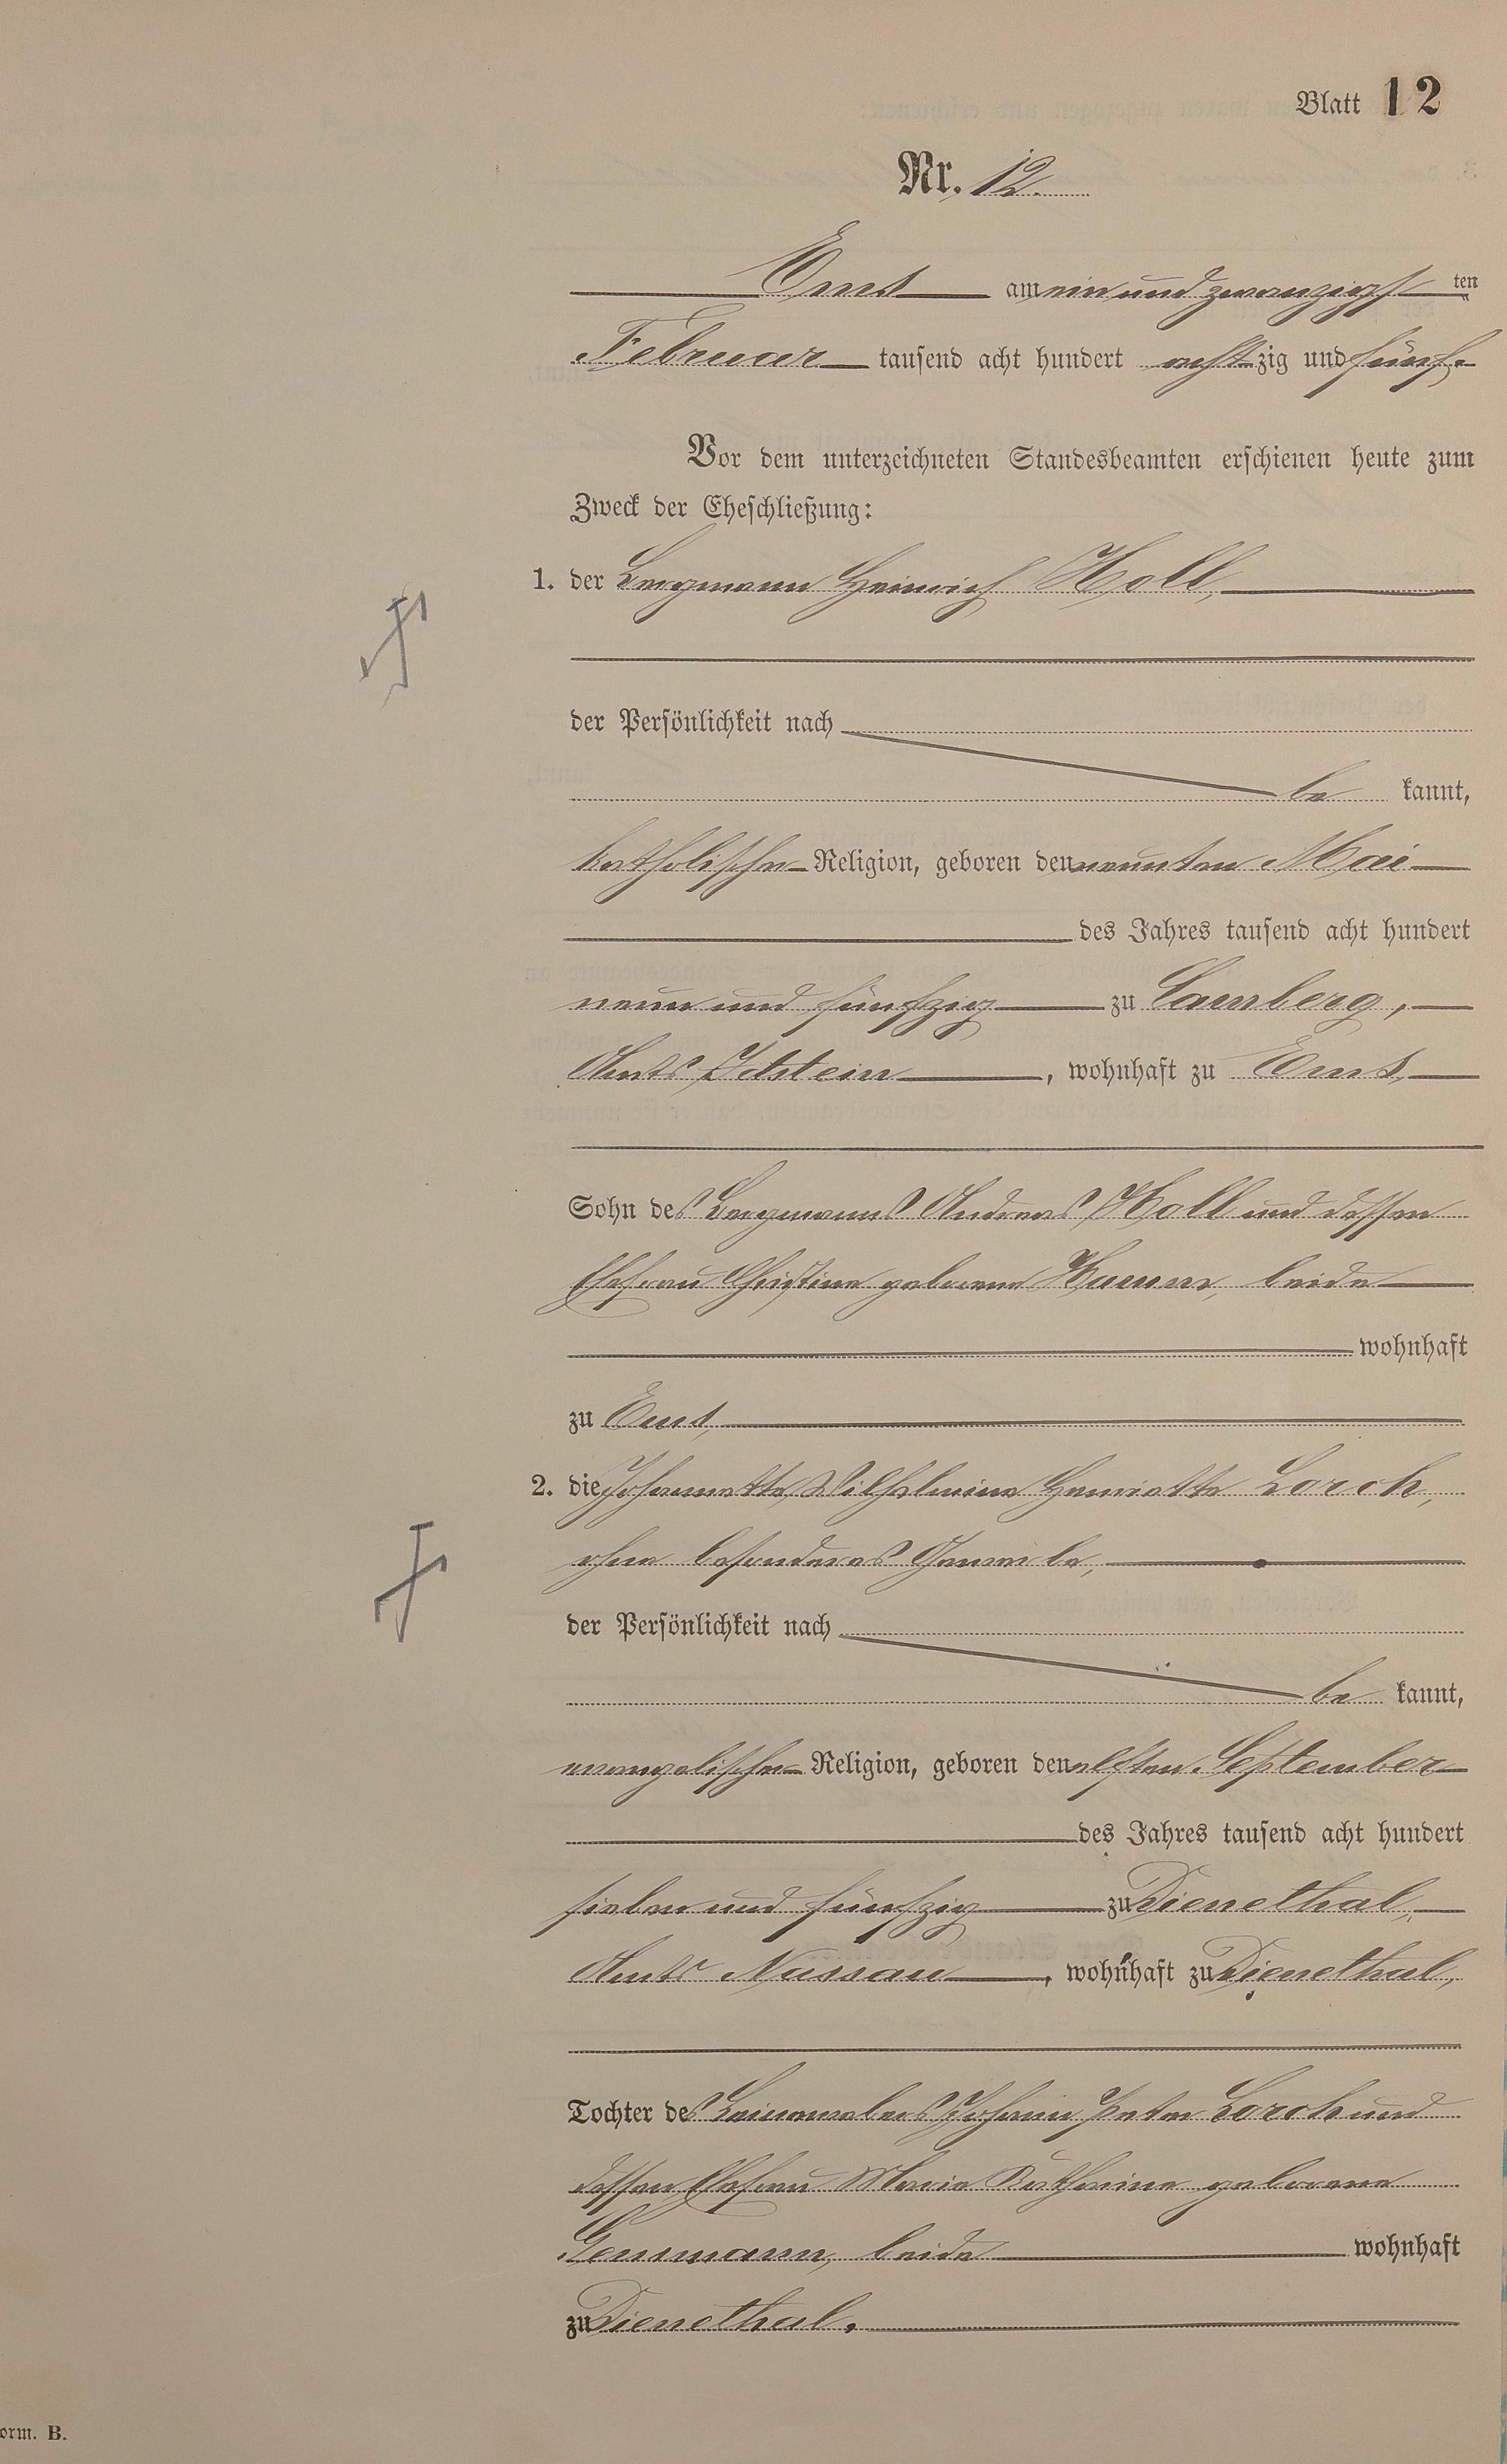 Blatt 12
Nr. 12.
Ems am ein und zwanzigsten
Februar tausend acht hundert achtzig und fünf.
Vor dem unterzeichneten Standesbeamten erschienen heute zum
Zweck der Eheschließung:
1. der Bergmann Heinrich Holl,
der Persönlichkeit nach
be kannt,
katholischer Religion, geboren den neunten Mai
des Jahres tausend acht hundert
neun und fünfzig zu Camberg,
Amts Idstein, wohnhaft zu Ems,
Sohn des Bergmanns Andreas Holl und dessen
Ehefrau Christine geborene Hamm, beide
wohnhaft
zu Ems,
2. die Johannette Wilhelmine Henriette Lorch,
ohne besonderes Gewerbe,
der Persönlichkeit nach
be kannt,
evangelischer Religion, geboren den elften September
des Jahres tausend acht hundert
sieben und fünfzig zu Dienethal,
Amts Nassau, wohnhaft zu Dienethal,
Tochter des Leinewebers Johann Peter Lorch und
dessen Ehefrau Marie Katharine geborene
beide wohnhaft
zu Dienethal.
orm. B.